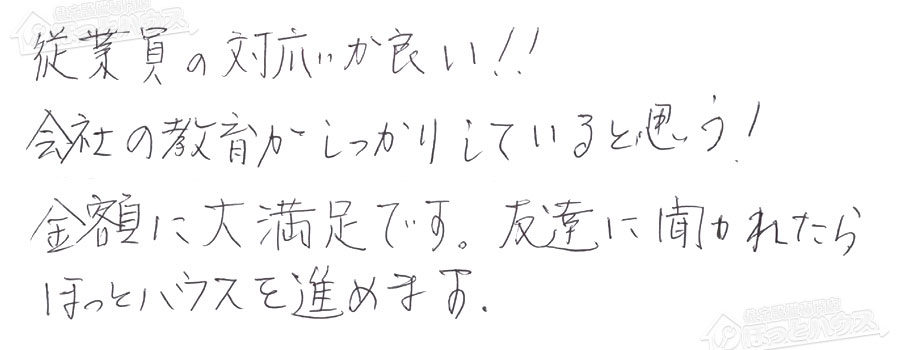 従業員の対応が良い!!
会社の教育がしっかりしていると思う!
金額に大満足です。友達に聞かれたら
ほっとハウスを進めます.
ほっとハウス